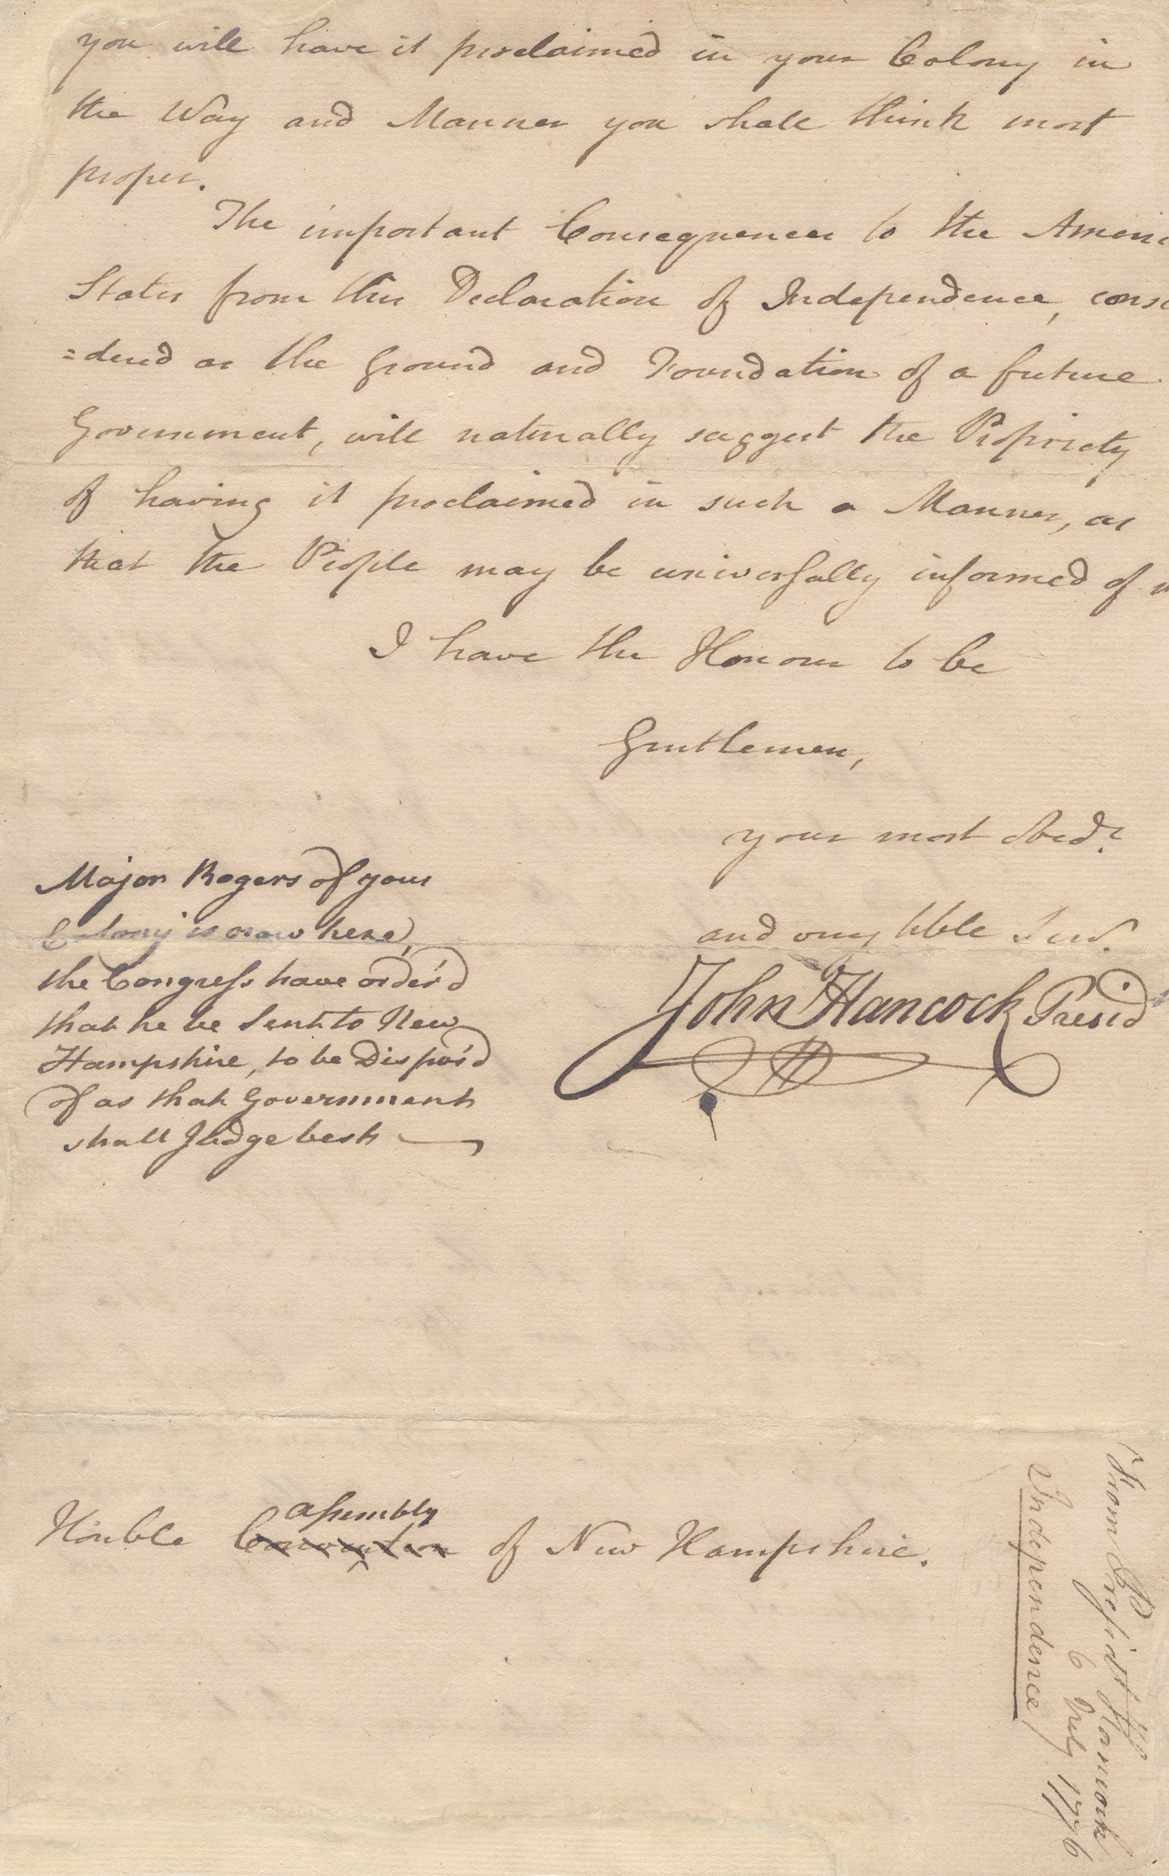 you will have it proclaimed in your Colony in
the Way and Manner you shall think most
proper.
The important Consequences to the Ameri
States from this Declaration of Independence, consi
=dered as the Ground and Foundation of a future
Government, will naturally suggest the Propriety
of having it proclaimed in such a Manner, as
that the People may be universally informed of
I have the Honour to be
Gentlemen,
your most Obedt
and very hble Serv.
John Hancock Presid
Major Rogers of your
Colony is now here,
the Congress have order'd
that he be Sent to New
Hampshire, to be Dispos'd
of as that Government
shall Judge best
assembly
Honble Convention of New Hampshire.
From Presidt Hancock
6 July 1776
Independence